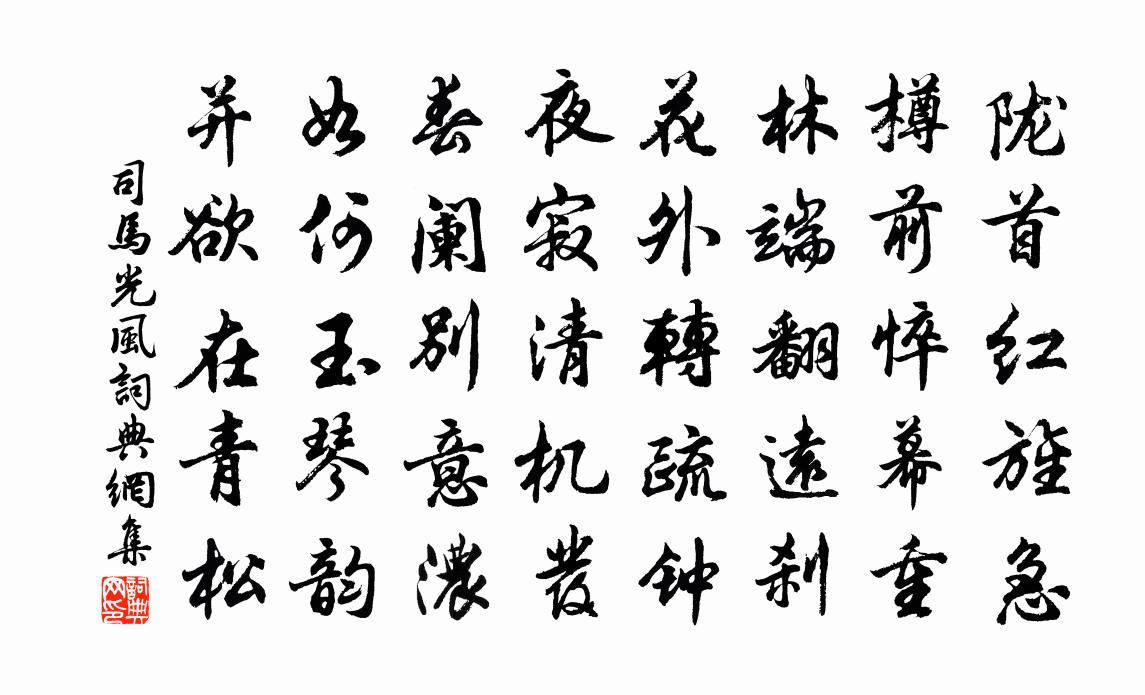 陇首红旌急
樽前悴幕重
林端翻遠刹
花外轉疏钟
夜寂清机發
春阑别意濃
如何玉琴韵
并欲在青松
司馬光風詞典網集
詞典
网印